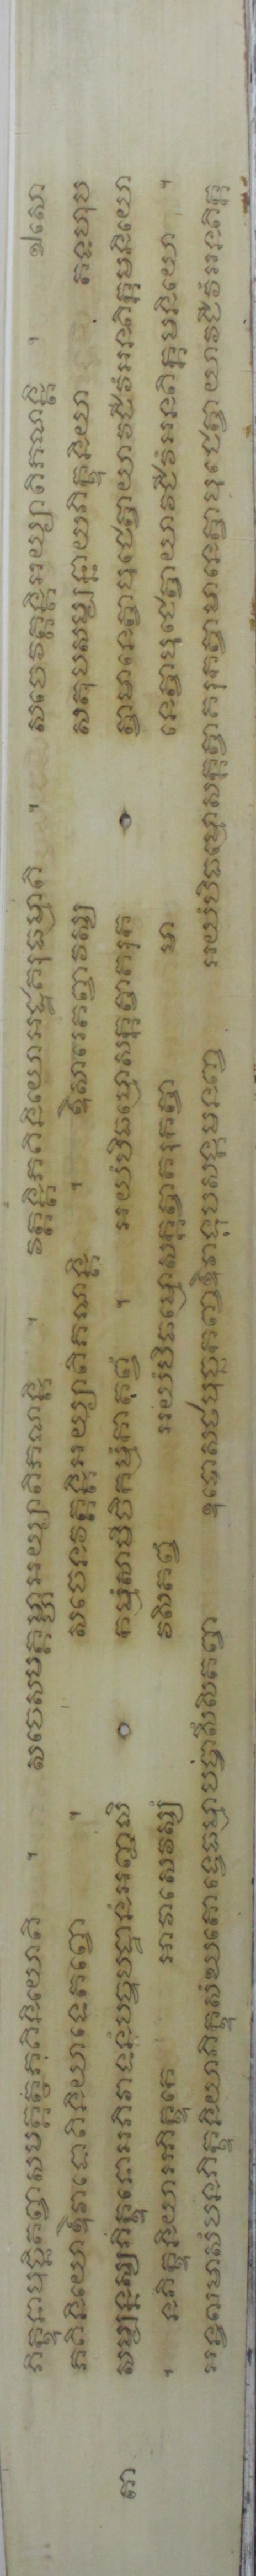 ភិក្ខុនាបុច្ឆិតព្វាសមគ្គត្ថភគិនិយោតិ ។ សចេសមគ្គម្ហាអយ្យាតិភណន្តិ ។ វត្តន្តិភគិនិយោអដ្ឋគរុធម្មាតិ ។ សចេវត្តន្តិអយ្យាតិភណន្តិ ។ ឯសោ
ភគិនិយោឱវាទោតិនិយាទេតព្វោ ។ សចេនវត្តន្តិអយ្យាតិភណន្តិ ។ ឱសារេតព្វាវស្ស សតុបសម្បន្នាយភិក្ខុនិយា តទហុប
កា សម្បន្នស្សភិក្ខុនោអភិវាទនំបច្ចុបដ្ឋានំអញ្ជលិ កម្មំសាមីចិកម្មំកាតុព្វំ ។ អយំបិធម្មោសក្កត្វាគរុក ត្វាមានេត្វាបុជេត្វាយាវជីវំអនតិក្កមនិយោ
។ នភិក្ខុនិយាអភិក្ខុកេ អាវាសេវស្សំ វសិតព្វំ អយំបិធម្មោសក្កត្វាគរុកត្វា មា នេត្វាបុជេត្វាយាវជីវំអនតិក្កមនិយោ ។
អន្វឌ្ឍមាសំបនភិក្ខុនិយាភិក្ខុសំឃតោទ្វេធម្មាបច្ចាសីសិតព្វា ឧបោសថបុច្ឆកញ្ចឱវាទុបសង្កមនញ្ច អយំបិធម្មោសក្កត្វាគរុកត្វាមានេត្វាបុជេត្វាយាវជីវំអនតិក្ក